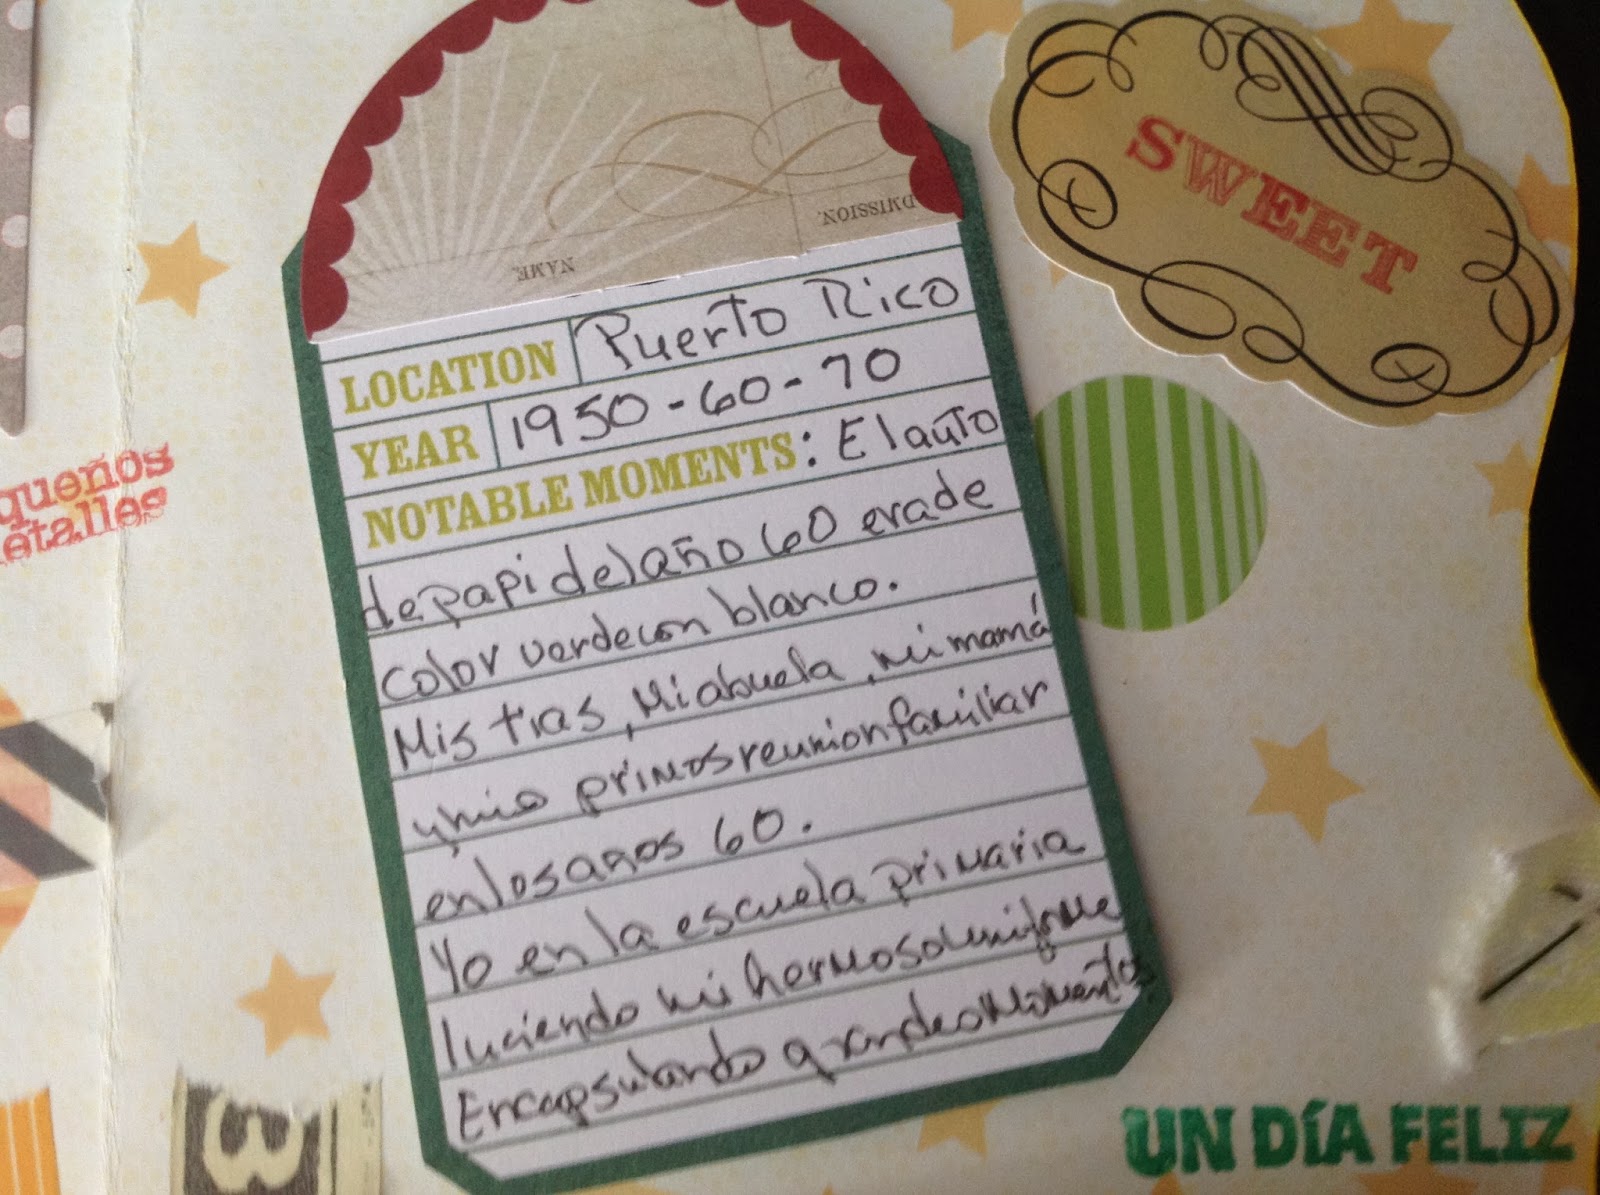 SWEET
DMISSION.
NAME.
LOCATION Puerto Rico
YEAR 1950-60-70
NOTABLE MOMENTS: El auto
de papi del año 60 era de
color verde con blanco.
Mis tias, Mi abuela, mi mamá
y mis primos reunion familiar
en los años 60.
Yo en la escuela primaria
luciendo mi hermoso uniforme
Encapsulando grandes Momentos
queños
etalles
3
UN DÍA FELIZ